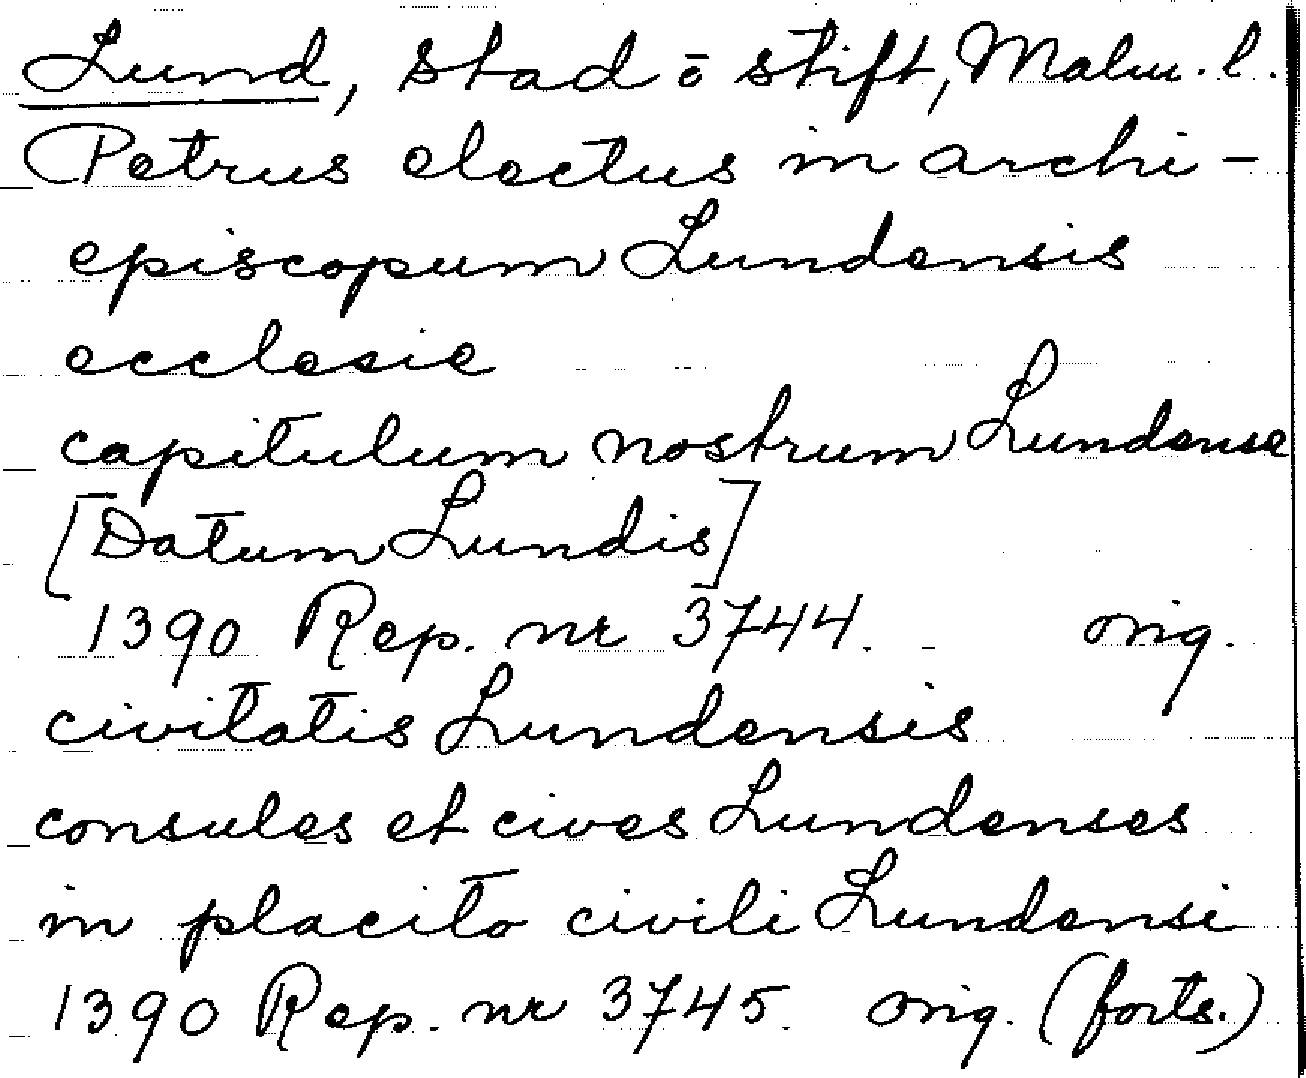 Lund, stad ō stift, Malm. l.
Petrus electus in archi-
episcopum Lundensis
ecclesie
capitulum nostrum Lundense
[Datum Lundis]
1390 Rep. nr 3744. orig.
civitatis Lundensis
consules et cives Lundenses
in placito civili Lundensi
1390 Rep. nr 3745. orig. (forts.)